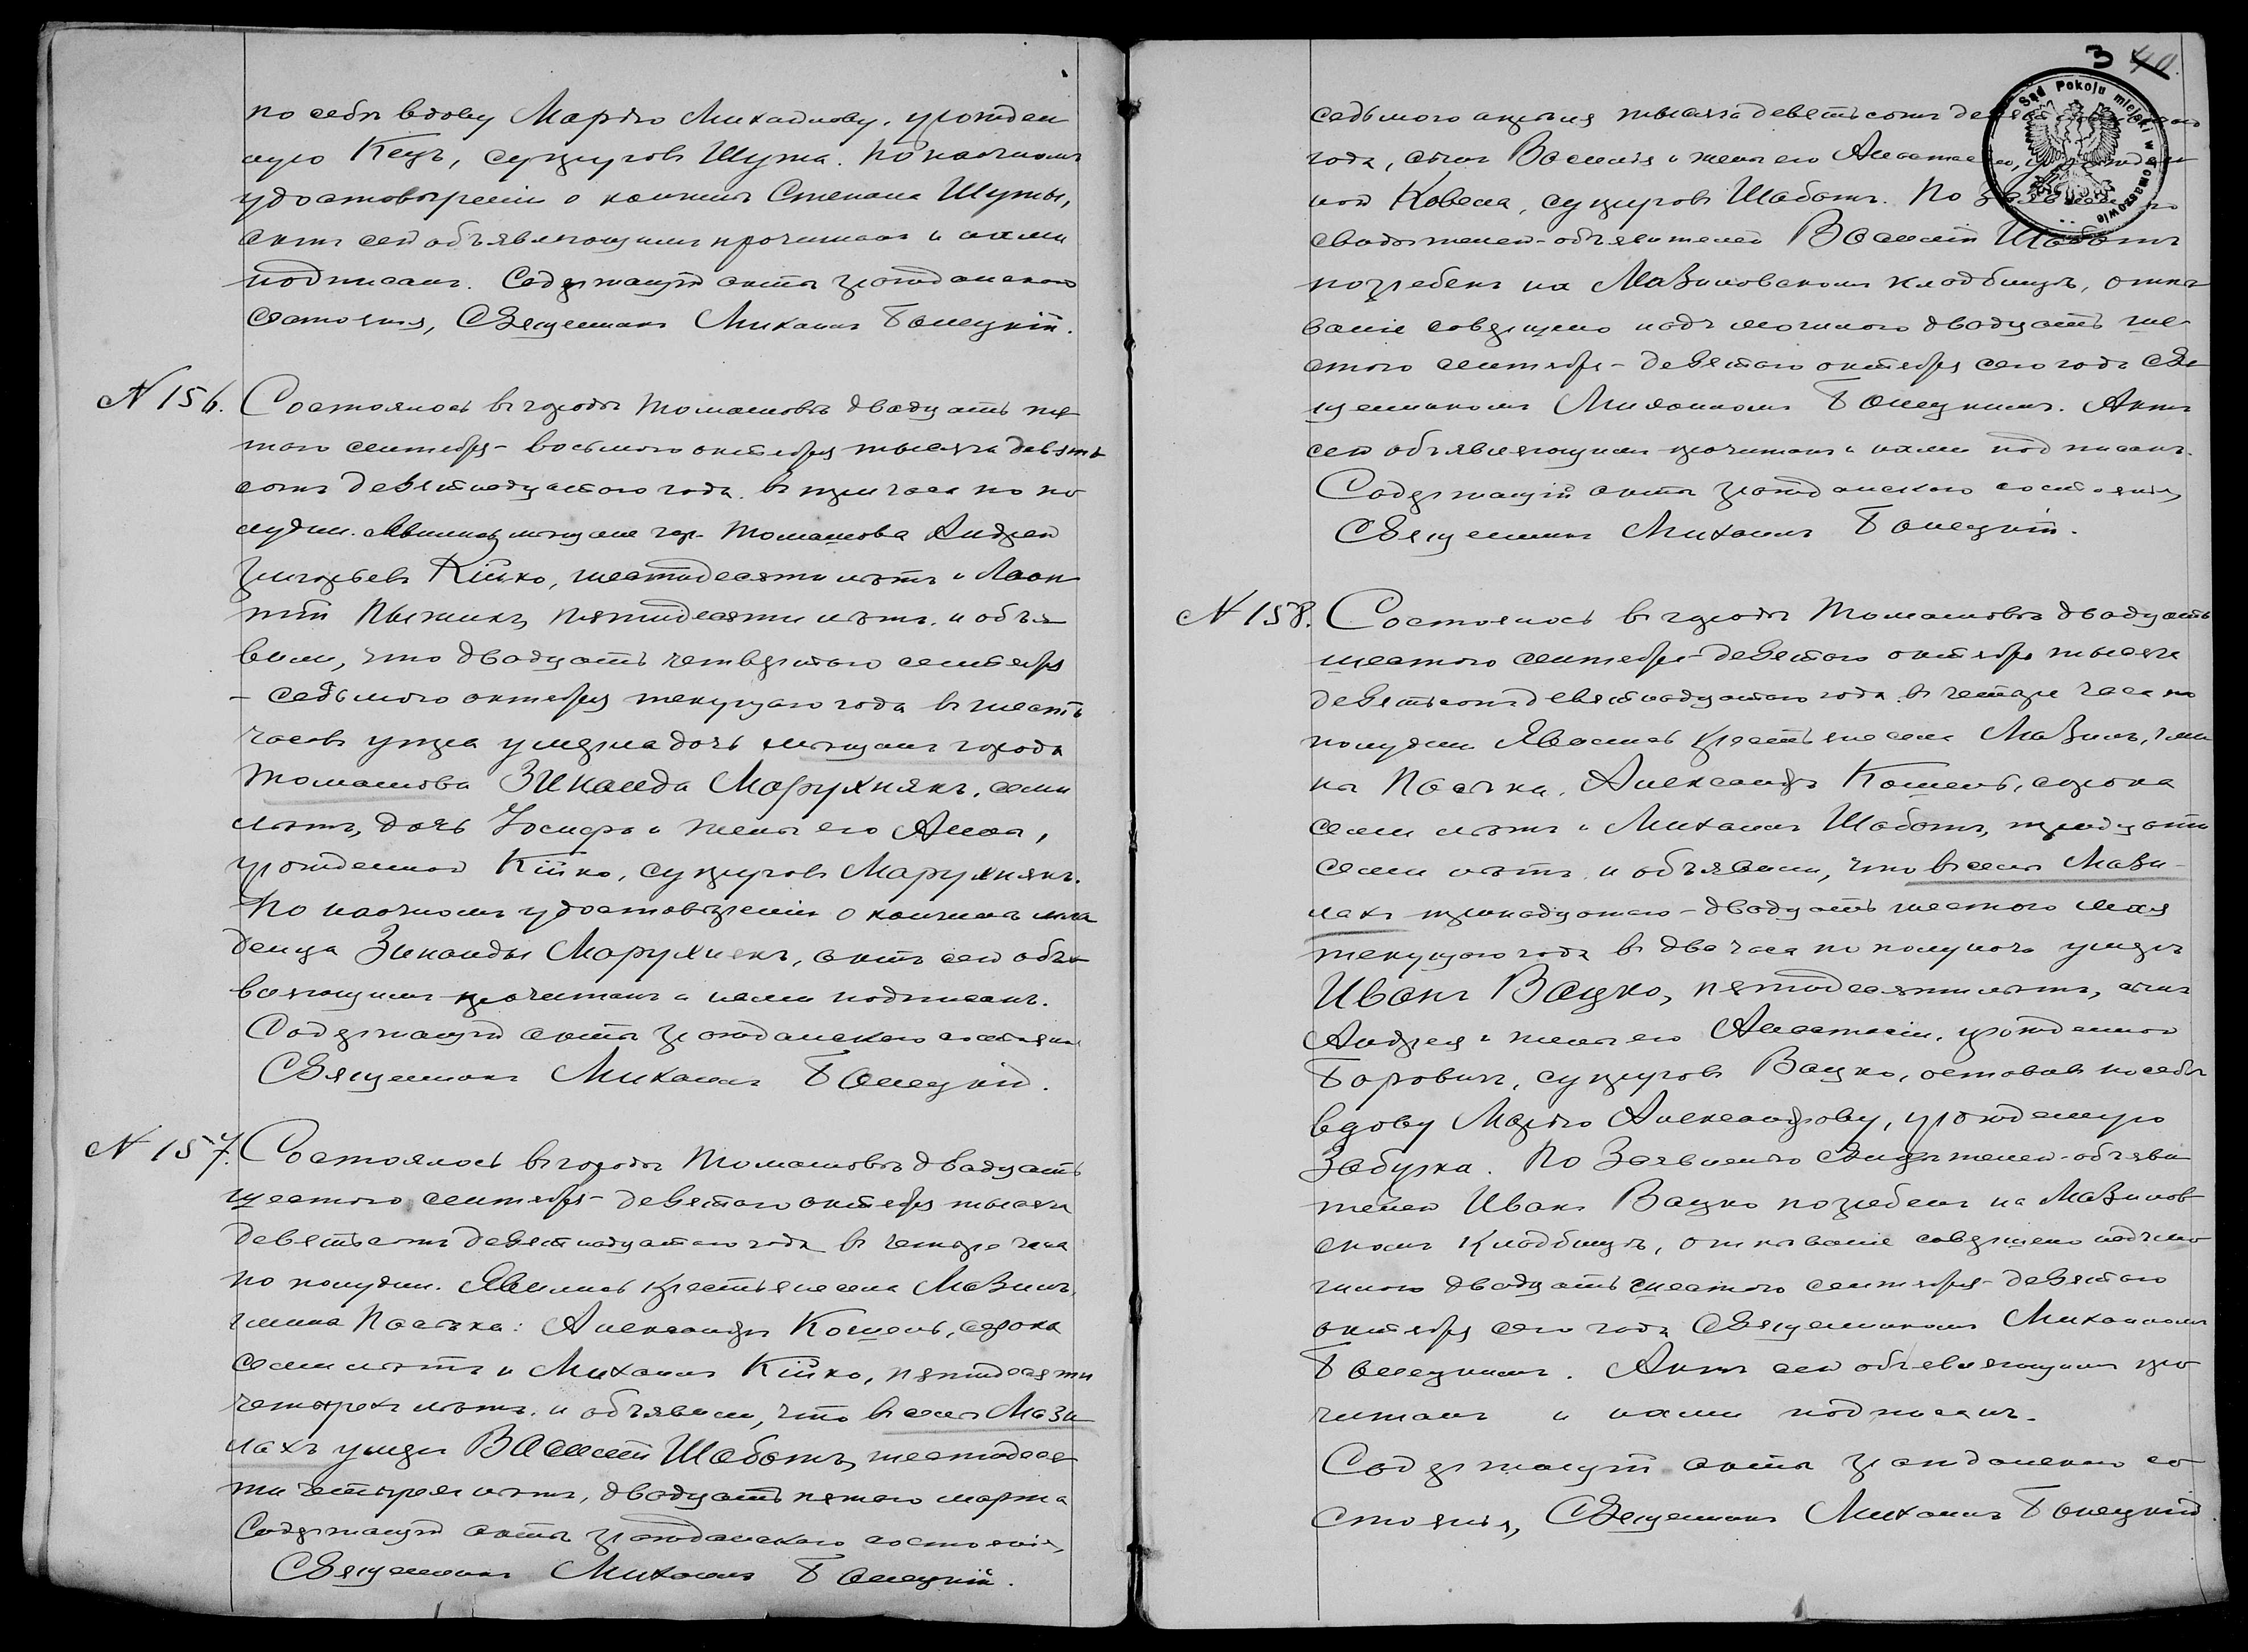 по себѣ вдову Марію Михайлову, урожден
ную Кецъ, супруговъ Шута. По наочномъ
удостовѣреніи о кончинѣ Степана Шуты,
актъ сей объявляющимъ прочитанъ и нами
подписанъ. Содержащій акты гражданскаго
состоянія, Священникъ Михаилъ Бонецкій.
N 156. Состоялось въ городѣ Томашовѣ двадцать пя
таго сентября - восьмого октября тысяча девять
сотъ девятнадцатого года въ три часа по по
лудни. Явились мѣщане гор. Томашова Андрей
Григорьевъ Кійко, шестидесяти лѣтъ и Леон
тій Пыжикъ, пятидесяти лѣтъ и объя
вили, что двадцать четвертого сентября
- седьмого октября текущаго года въ шесть
часовъ утра умерла дочь мѣщанъ города
Томашова Зинаида Марухнякъ, семи
лѣтъ, дочь Іосифа и жены его Анны,
урожденной Кійко, супруговъ Марухнякъ.
По наочномъ удостовѣреніи о кончинѣ мла
денца Зинаиды Марухнякъ, актъ сей объя
вляющимъ прочитанъ и нами подписанъ.
Содержащій акты гражданскаго состоянія
Священникъ Михаилъ Бонецкій.
N 157. Состоялось въ городѣ Томашовѣ двадцать
шестого сентября - девятаго октября тысяча
девятьсотъ девятнадцатаго года въ четыре часа
по полудни. Явились крестьяне села Мазилъ,
гмина Пасѣка: Александръ Кошель, сорока
семи лѣтъ и Михаилъ Кійко, пятидесяти
четырехъ лѣтъ и объявили, что въ селѣ Мази
лахъ умеръ Василій Шаботъ, шестидеся
ти четырехъ лѣтъ, двадцать пятаго марта
Содержащій акты гражданскаго состоянія,
Священникъ Михаилъ Бонецкій.
3 40.
Sąd Pokoju miejski w Tomaszowie
седьмого апрѣля тысяча девятьсотъ
года, сынъ Василія и жены его Анастасіи,
ной Ковела, супруговъ Шаботъ. По
свидѣтелей-объявителей Василій Шаботъ
погребенъ на Мазиловскомъ кладбищѣ, отпѣ
ваніе совершено надъ могилою двадцать ше
стого сентября - девятаго октября сего года свя
щенникомъ Михаиломъ Бонецкимъ. Актъ
сей объявляющимъ прочитанъ и нами подписанъ.
Содержащій акты гражданскаго состоянія,
Священникъ Михаилъ Бонецкій.
N 158. Состоялось въ городѣ Томашовѣ двадцать
шестого сентября - девятаго октября тысяча
девятьсотъ девятнадцатаго года въ четыре часа по
полудни Явились крестьяне села Мазилъ, гми
ны Пасѣка, Александръ Кошель, сорока
семи лѣтъ и Михаилъ Шаботъ, тридцати
семи лѣтъ и объявили, что въ селѣ Мази-
лахъ тринадцатаго - двадцать шестого мая
текущаго года въ два часа по полуночи умеръ
Иванъ Вацко, пятидесяти лѣтъ, сынъ
Андрея и жены его Анастасіи, урожденной
Боровичъ, супруговъ Вацко, оставивъ по себѣ
вдову Марію Александрову, урожденную
Забурка. По Заявленію Свидѣтелей-объяви
телей Иванъ Вацко погребенъ на Мазилов
скомъ кладбищѣ, отпѣваніе совершено надъ мо
гилою двадцать шестого сентября - девятаго
октября сего года Священникомъ Михаиломъ
Бонецкимъ. Актъ сей объявляющимъ про
читанъ и нами подписанъ.
Содержащій акты гражданскаго со
стоянія, Священникъ Михаилъ Бонецкій